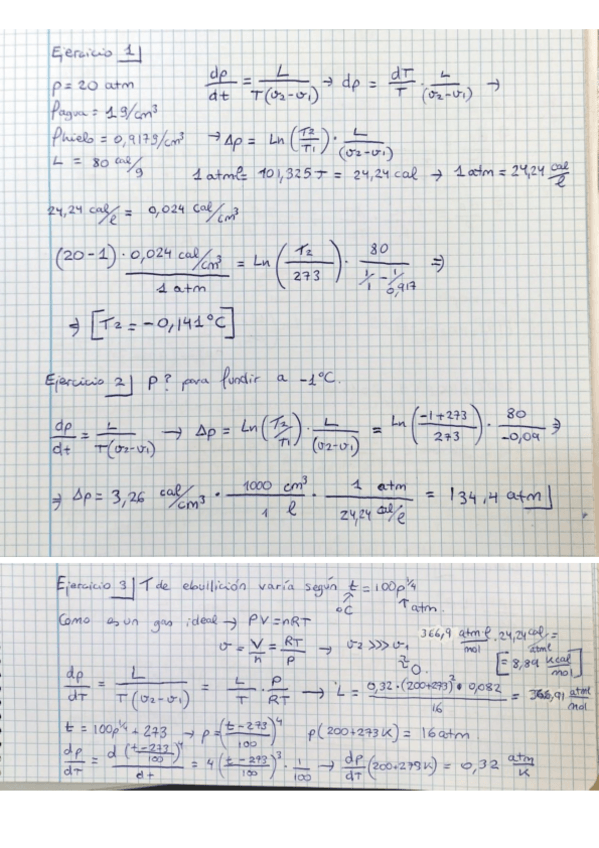 Ejercicio 1
P = 20 atm
dp/dt = L/T(v2-v1) → dp = dT/T · L/(v2-v1) →
Pagua = 1g/cm³
Phielo = 0,917g/cm³ → Δp = Ln(T2/T1) · L/(v2-v1)
L = 80 cal/g
1 atm l = 101,325 J = 24,24 cal → 1 atm = 24,24 cal/l
24,24 cal/l = 0,024 cal/cm³
(20-1) · 0,024 cal/cm³ / 1 atm = Ln(T2/273) · 80/(1/1 - 1/0,917) ⇒
⇒ [T2 = -0,141°C]
Ejercicio 2 P? para fundir a -1°C.
dp/dt = L/T(v2-v1) → Δp = Ln(T2/T1) · L/(v2-v1) = Ln((-1+273)/273) · 80/-0,09 ⇒
⇒ Δp = 3,26 cal/cm³ · 1000 cm³/1 l · 1 atm/24,24 cal/l = 134,4 atm
Ejercicio 3 T de ebullición varía según t = 100p^1/4
°C atm.
Como es un gas ideal → PV = nRT
v = V/n = RT/P → v2 >>> v1 ≈ 0.
366,9 atm l/mol · 24,24 cal/atm l =
[= 8,89 kcal/mol]
dp/dT = L/T(v2-v1) = L/T · P/RT → L = 0,32·(200+273)²·0,082/16 = 366,91 atm l/mol
t = 100p^1/4 + 273 → p = ((t-273)/100)^4 p(200+273K) = 16 atm.
dp/dT = d((t-273)/100)^4/dt = 4((t-273)/100)³ · 1/100 → dp/dT(200+273K) = 0,32 atm/K